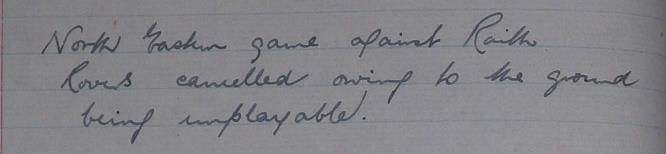 North Eastern game against Raith
Rovers cancelled owing to the ground
being unplayable.